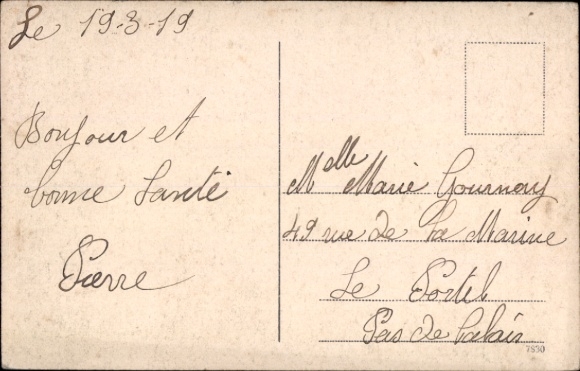 Le 19-3-19
Bonjour et
bonne Santé
Pierre
Melle Marie Gournay
49 rue de la Marine
Le Portel
Pas de Calais
7890